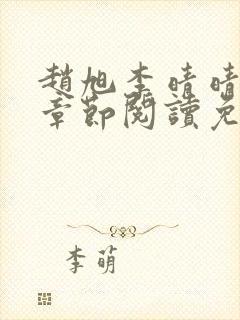 趙旭李晴晴
章節閱讀免
李萌